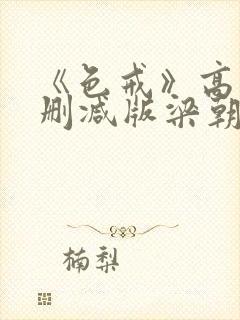 《色戒》高
删减版梁朝
楠梨